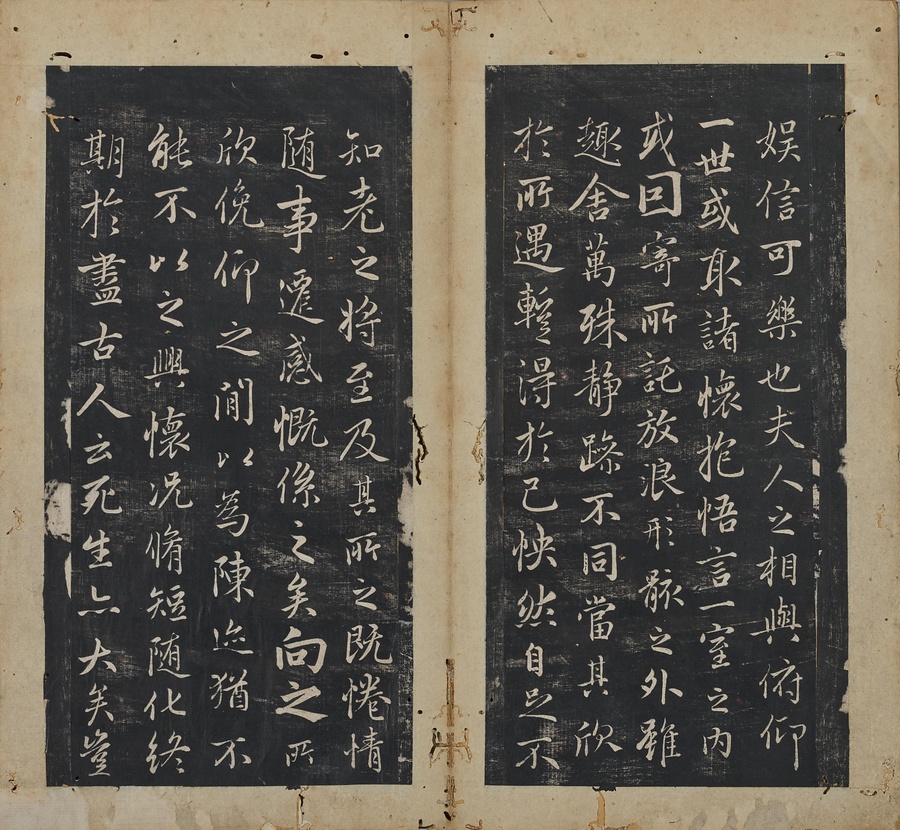 娛信可樂也夫人之相與俯仰
一世或取諸懷抱悟言一室之內
或因寄所託放浪形骸之外雖
趣舍萬殊靜躁不同當其欣
於所遇蹔得於己怏然自足不
知老之將至及其所之既惓情
随事遷感慨係之矣向之所
欣俛仰之閒以為陳迹猶不
能不以之興懷况脩短随化終
期於盡古人云死生亦大矣豈